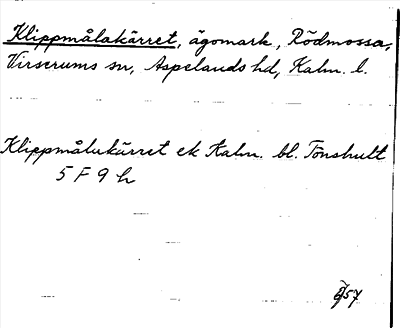 Klippmålakärret, ägomark, Rödmossa,
Virserums sn, Aspelands hd, Kalm. l.
Klippmålakärret ek Kalm. bl. Tönshult
5 F 9 h
57